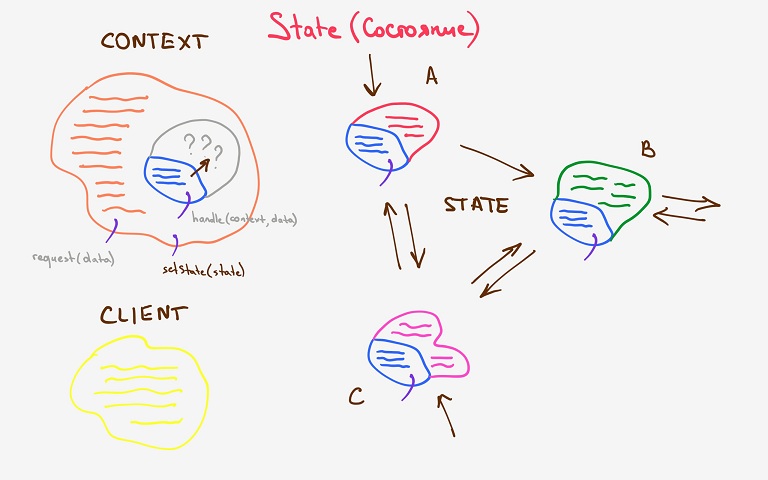 State (Состояние)
CONTEXT
A
? ? ?
B
STATE
handle(context, data)
request(data)
setState(state)
CLIENT
C